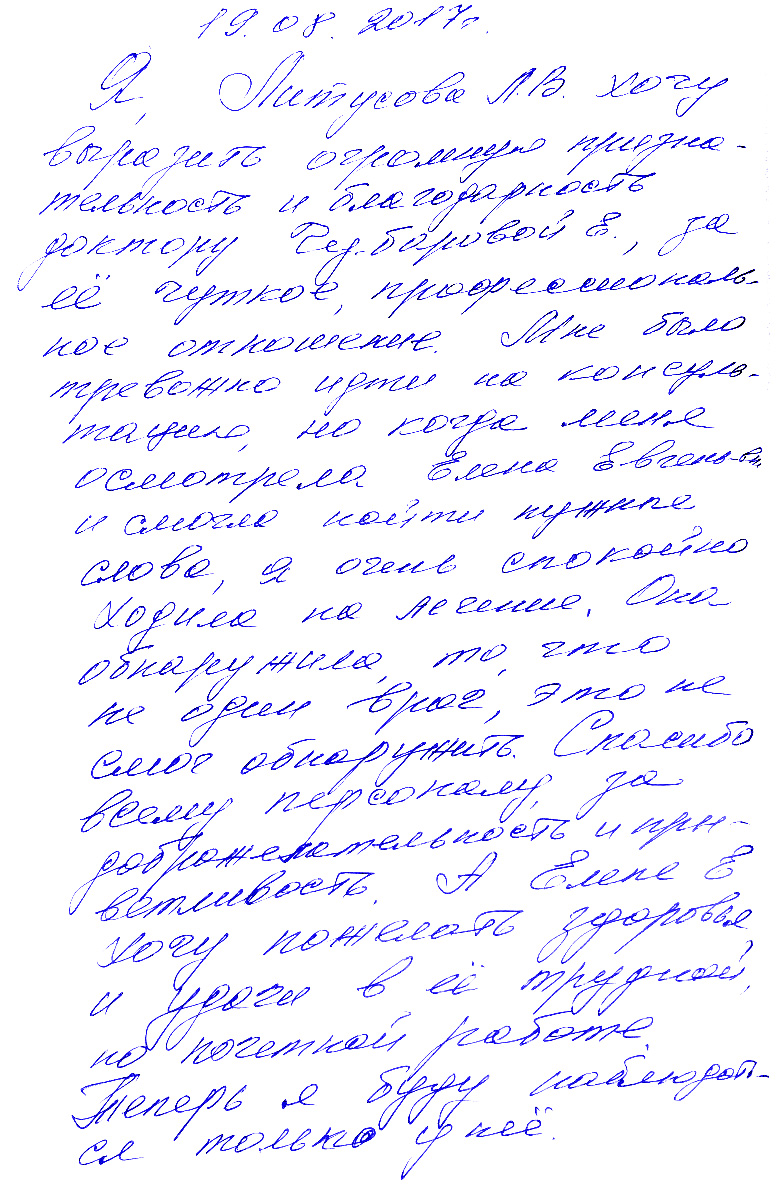 19.08.2017г.
Я, Литусова Л.В. хочу
выразить огромную призна-
тельность и благодарность
доктору Е., за
её чуткое, профессиональ-
ное отношение. Мне было
тревожно идти на консуль-
тацию, но когда меня
осмотрела Елена Евгеньевна
и смогла найти нужные
слова, я очень спокойно
ходила на лечение. Она
обнаружила, то, что
не один врач, это не
смог обнаружить. Спасибо
всему персоналу, за
доброжелательность и при-
ветливость. А Елене Е
хочу пожелать здоровья,
и удачи в её трудной,
но почетной работе.
Теперь я буду наблюдать-
ся только у неё.